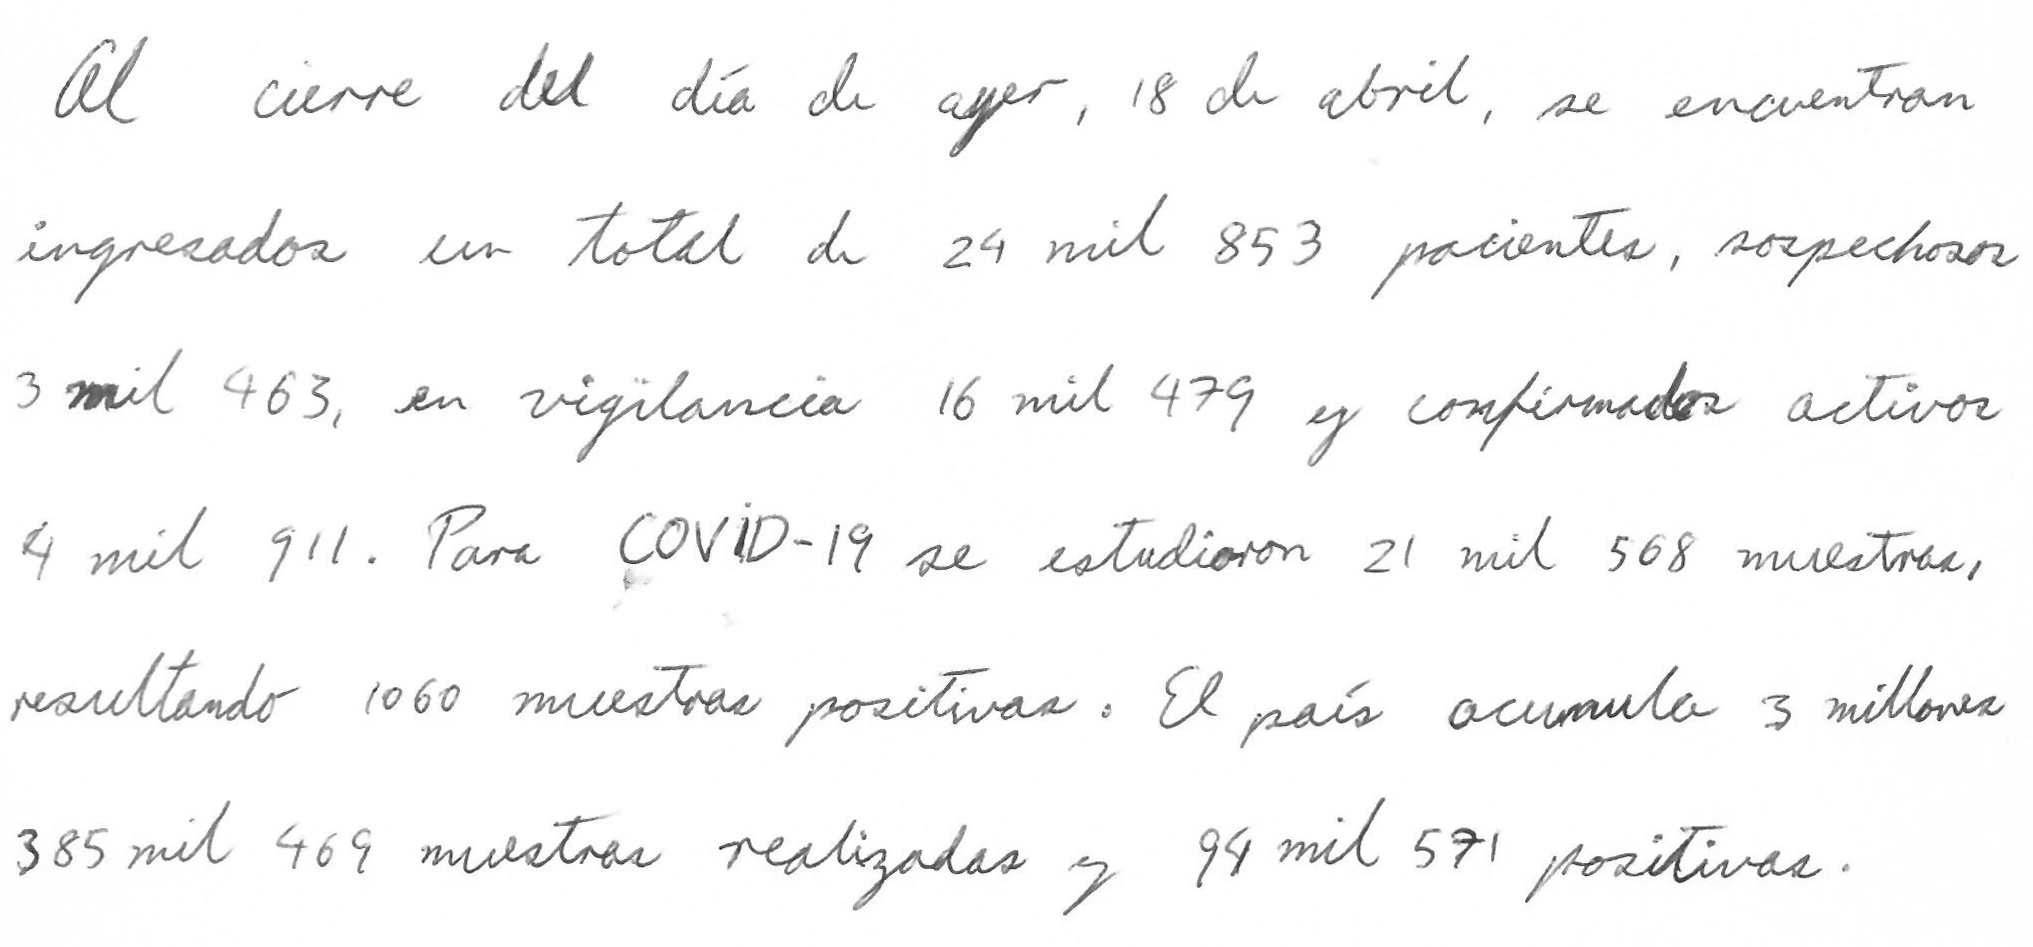 Al cierre del día de ayer, 18 de abril, se encuentran
ingresados un total de 24 mil 853 pacientes, sospechosos
3 mil 463, en vigilancia 16 mil 479 y confirmados activos
4 mil 911. Para COVID-19 se estudiaron 21 mil 568 muestras,
resultando 1060 muestras positivas. El país acumula 3 millones
385 mil 469 muestras realizadas y 94 mil 571 positivas.